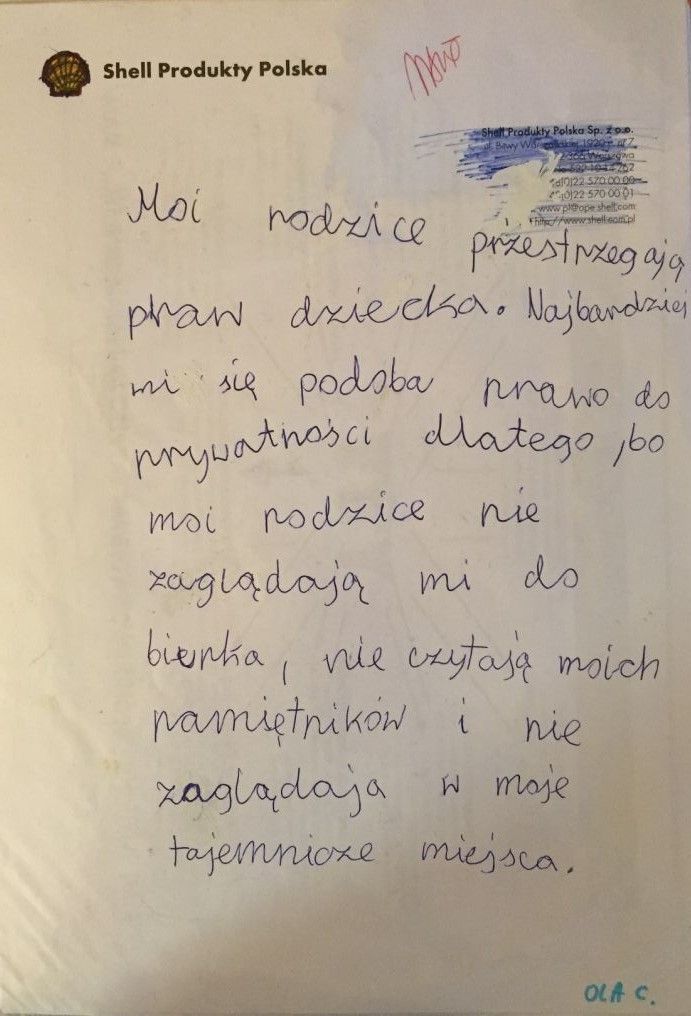 Shell Produkty Polska
Shell Produkty Polska Sp. z o.o.
022 570 00 00
022 570 00 01
www.pl@ope.shell.com
http://www.shell.com.pl
Moi rodzice przestrzegają
praw dziecka. Najbardziej
mi się podoba prawo do
prywatności dlatego, bo
moi rodzice nie
zaglądają mi do
biurka, nie czytają moich
pamiętników i nie
zaglądaja w moje
tajemnicze miejsca.
OLA C.